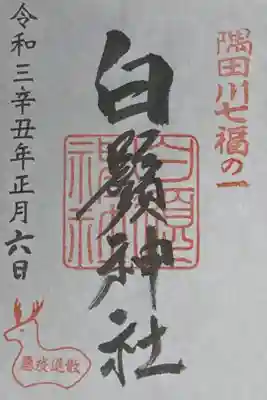 隅田川七福の一
白鬚神社
白鬚神社
令和三辛丑年正月六日
悪疫退散